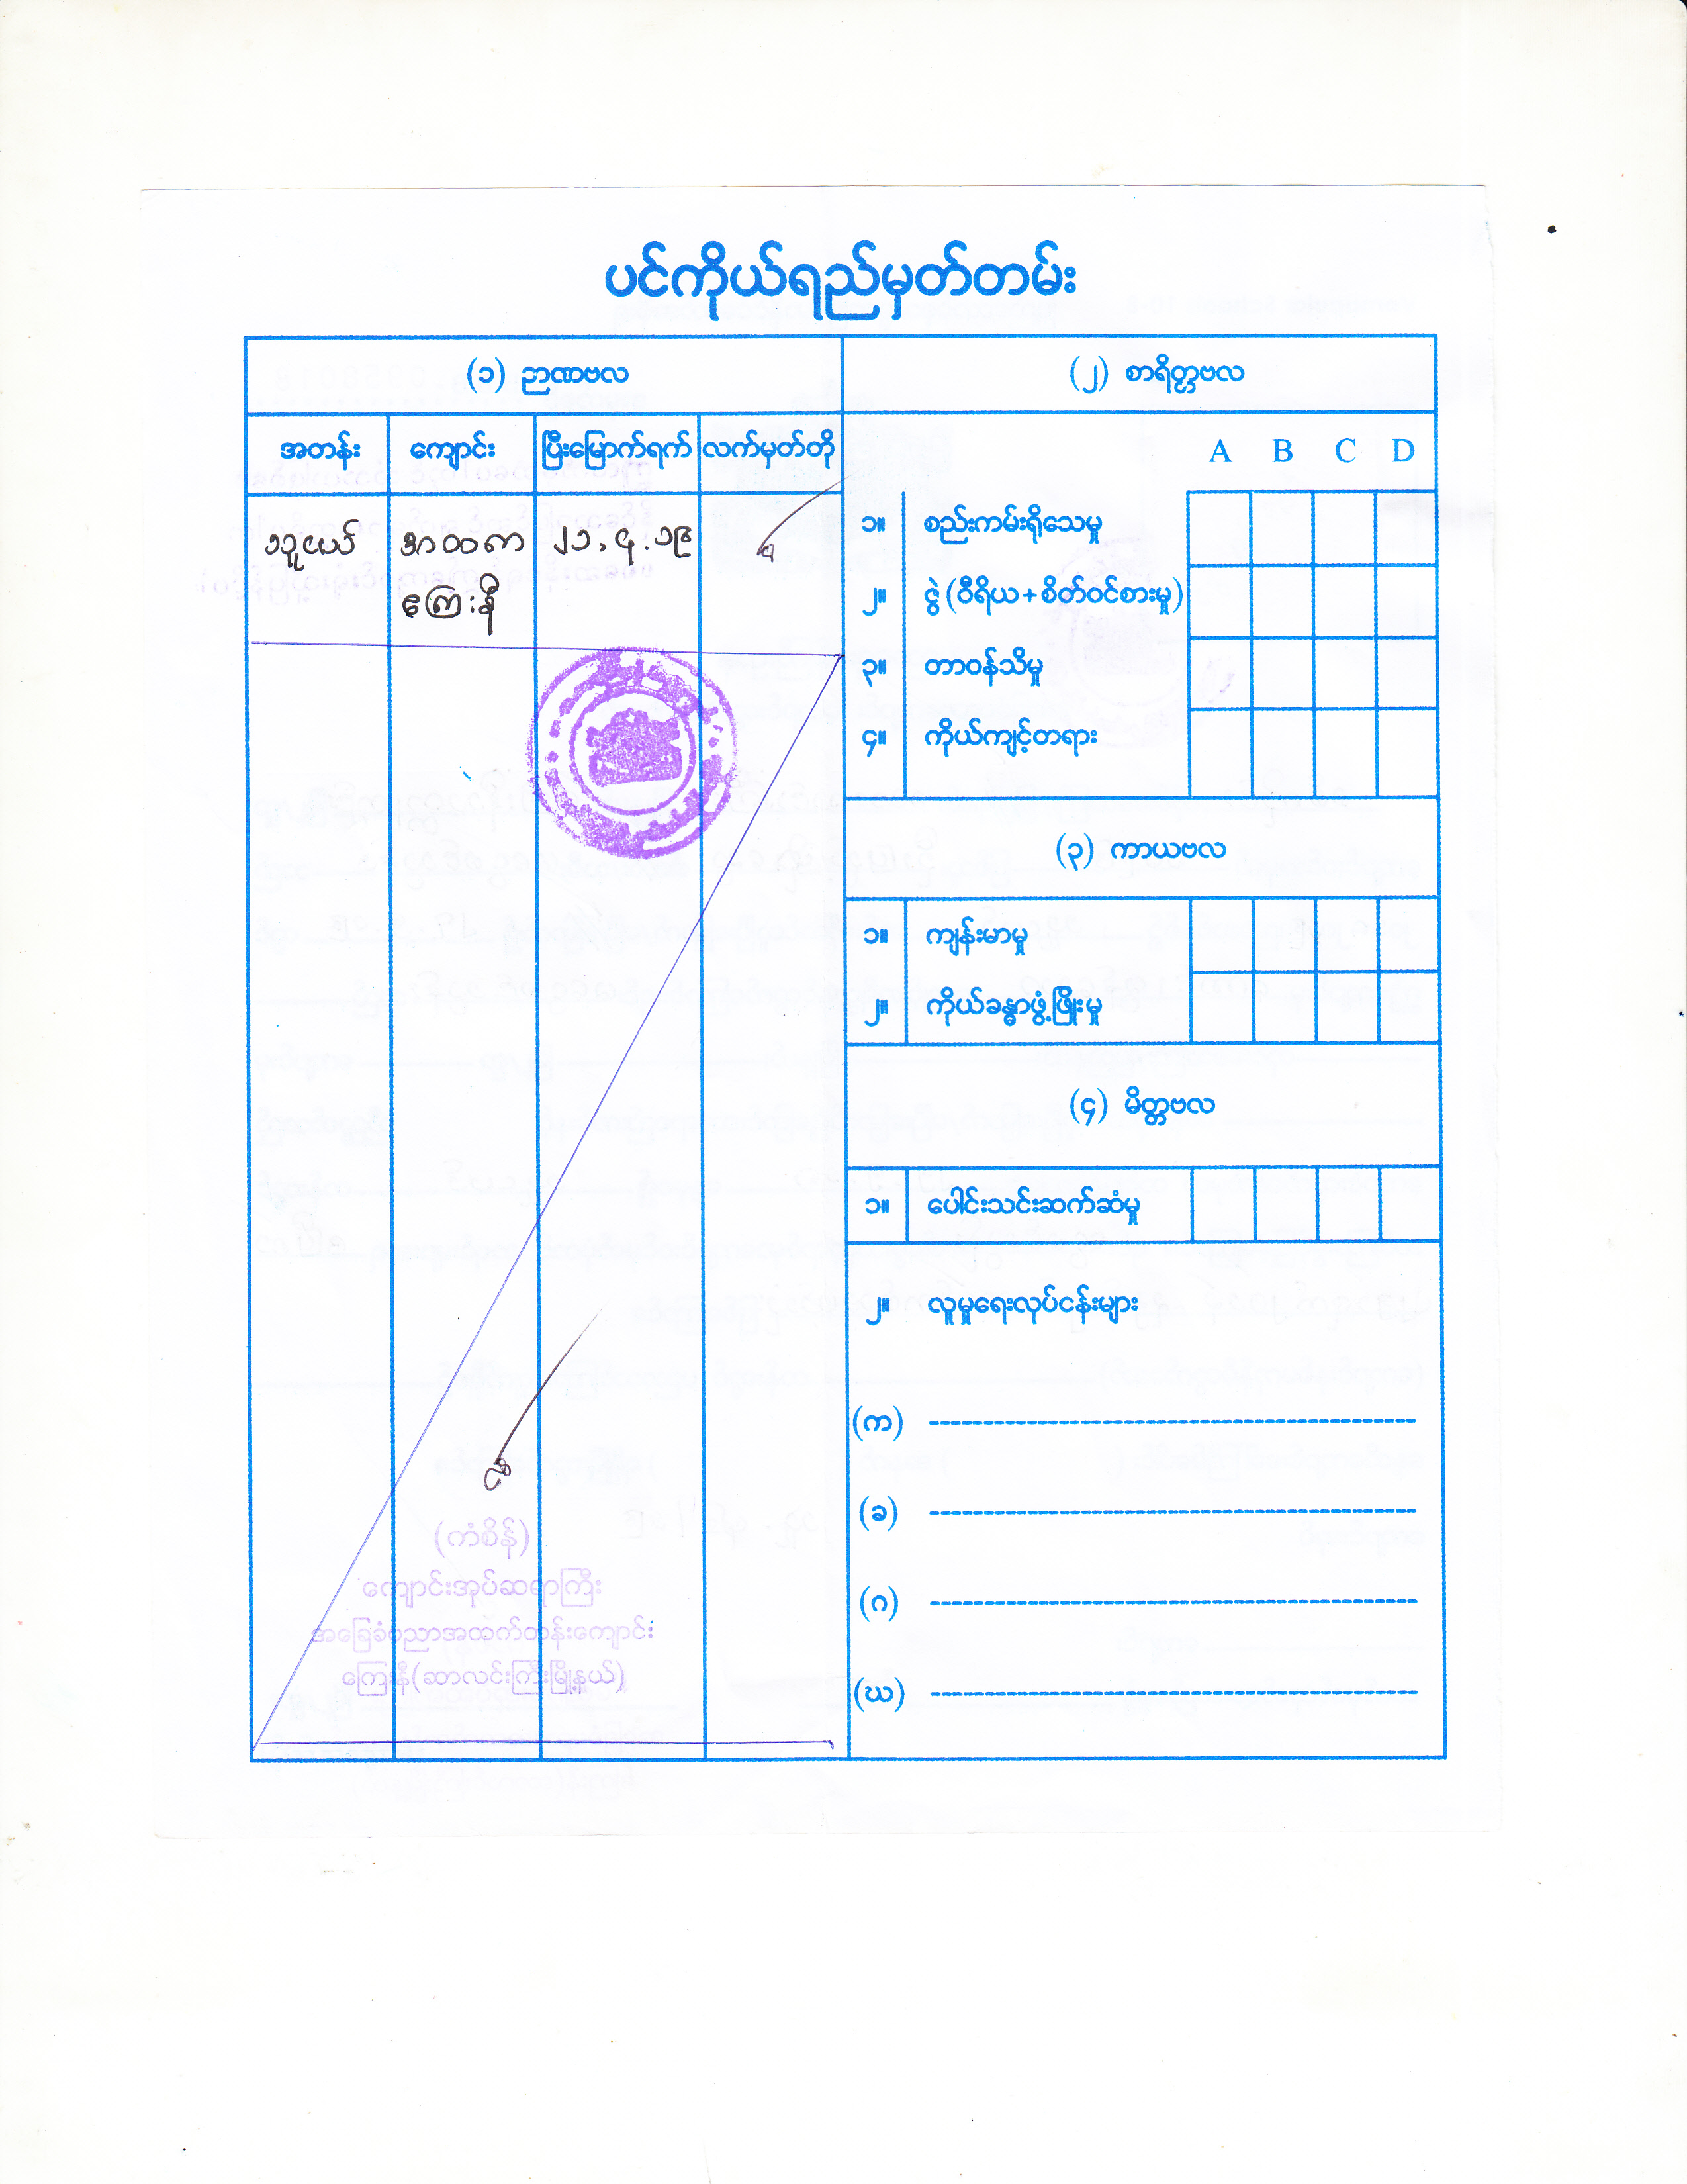 ပင်ကိုယ်ရည်မှတ်တမ်း
(၁) ဉာဏဗလ
အတန်း ကျောင်း ပြီးမြောက်ရက် လက်မှတ်တို
သူငယ် အထက ၂၁.၄.၁၉
ကြေးနီ
(ကံစိန်)
ကျောင်းအုပ်ဆရာကြီး
အခြေခံပညာအထက်တန်းကျောင်း
ကြေးနီ(ဆာလင်းကြီးမြို့နယ်)
(၂) စာရိတ္တဗလ
A B C D
၁။ စည်းကမ်းရိုသေမှု
၂။ ဇွဲ(ဝီရိယ+စိတ်ဝင်စားမှု)
၃။ တာဝန်သိမှု
၄။ ကိုယ်ကျင့်တရား
(၃) ကာယဗလ
၁။ ကျန်းမာမှု
၂။ ကိုယ်ခန္ဓာဖွံ့ဖြိုးမှု
(၄) မိတ္တဗလ
၁။ ပေါင်းသင်းဆက်ဆံမှု
၂။ လူမှုရေးလုပ်ငန်းများ
(က)
(ခ)
(ဂ)
(ဃ)